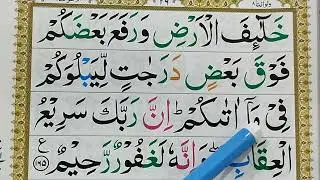 خَلٰٓئِفَ الْاَرْضِ وَرَفَعَ بَعْضَكُمْ
فَوْقَ بَعْضٍ دَرَجٰتٍ لِّيَبْلُوَكُمْ
فِيْ مَاۤ اٰتٰىكُمْ ؕ اِنَّ رَبَّكَ سَرِيْعُ
الْعِقَابِ ۖ وَاِنَّهٗ لَغَفُوْرٌ رَّحِيْمٌ ۝۱۶۵ ع